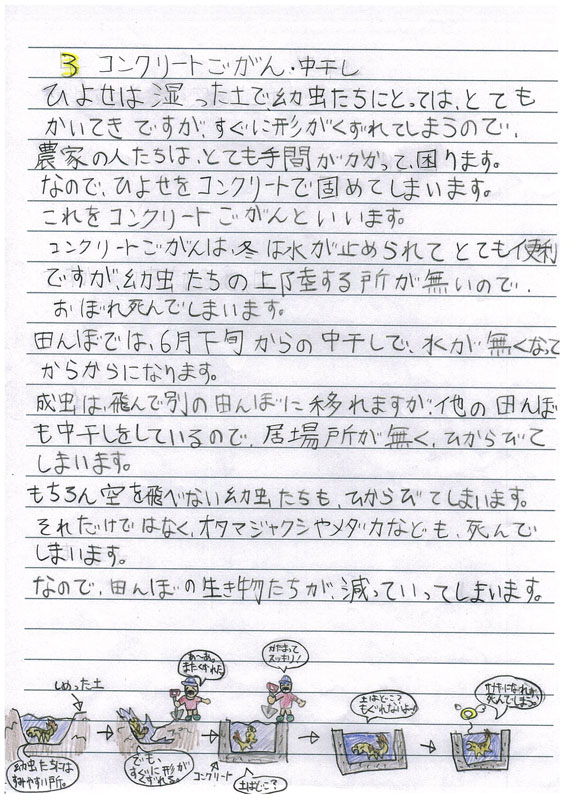 3 コンクリートごがん・中干し
ひよせは湿った土で、幼虫たちにとっては、とても
かいてきですが、すぐに形がくずれてしまうので、
農家の人たちは、とても手間がかかって、困ります。
なので、ひよせをコンクリートで固めてしまいます。
これをコンクリートごがんといいます。
コンクリートごがんは、冬は水が止められてとても便利
ですが、幼虫たちの上陸する所が無いので、
おぼれ死んでしまいます。
田んぼでは、6月下旬からの中干しで、水が無くなって
からからになります。
成虫は、飛んで別の田んぼに移れますが、他の田んぼ
も中干しをしているので、居場所が無く、ひからびて
しまいます。
もちろん空を飛べない幼虫たちも、ひからびてしまいます。
それだけではなく、オタマジャクシやメダカなども、死んで
しまいます。
なので、田んぼの生き物たちが、減っていってしまいます。
しめった土
あ〜あ。
またくずれた
かたまって
スッキリ!
土はどこ?
もぐれないよ〜
サナギになれず、
死んでしまう。
幼虫たちには
すみやすい所。
でも、
すぐに形が
くずれる。
コンクリート
土はどこ?